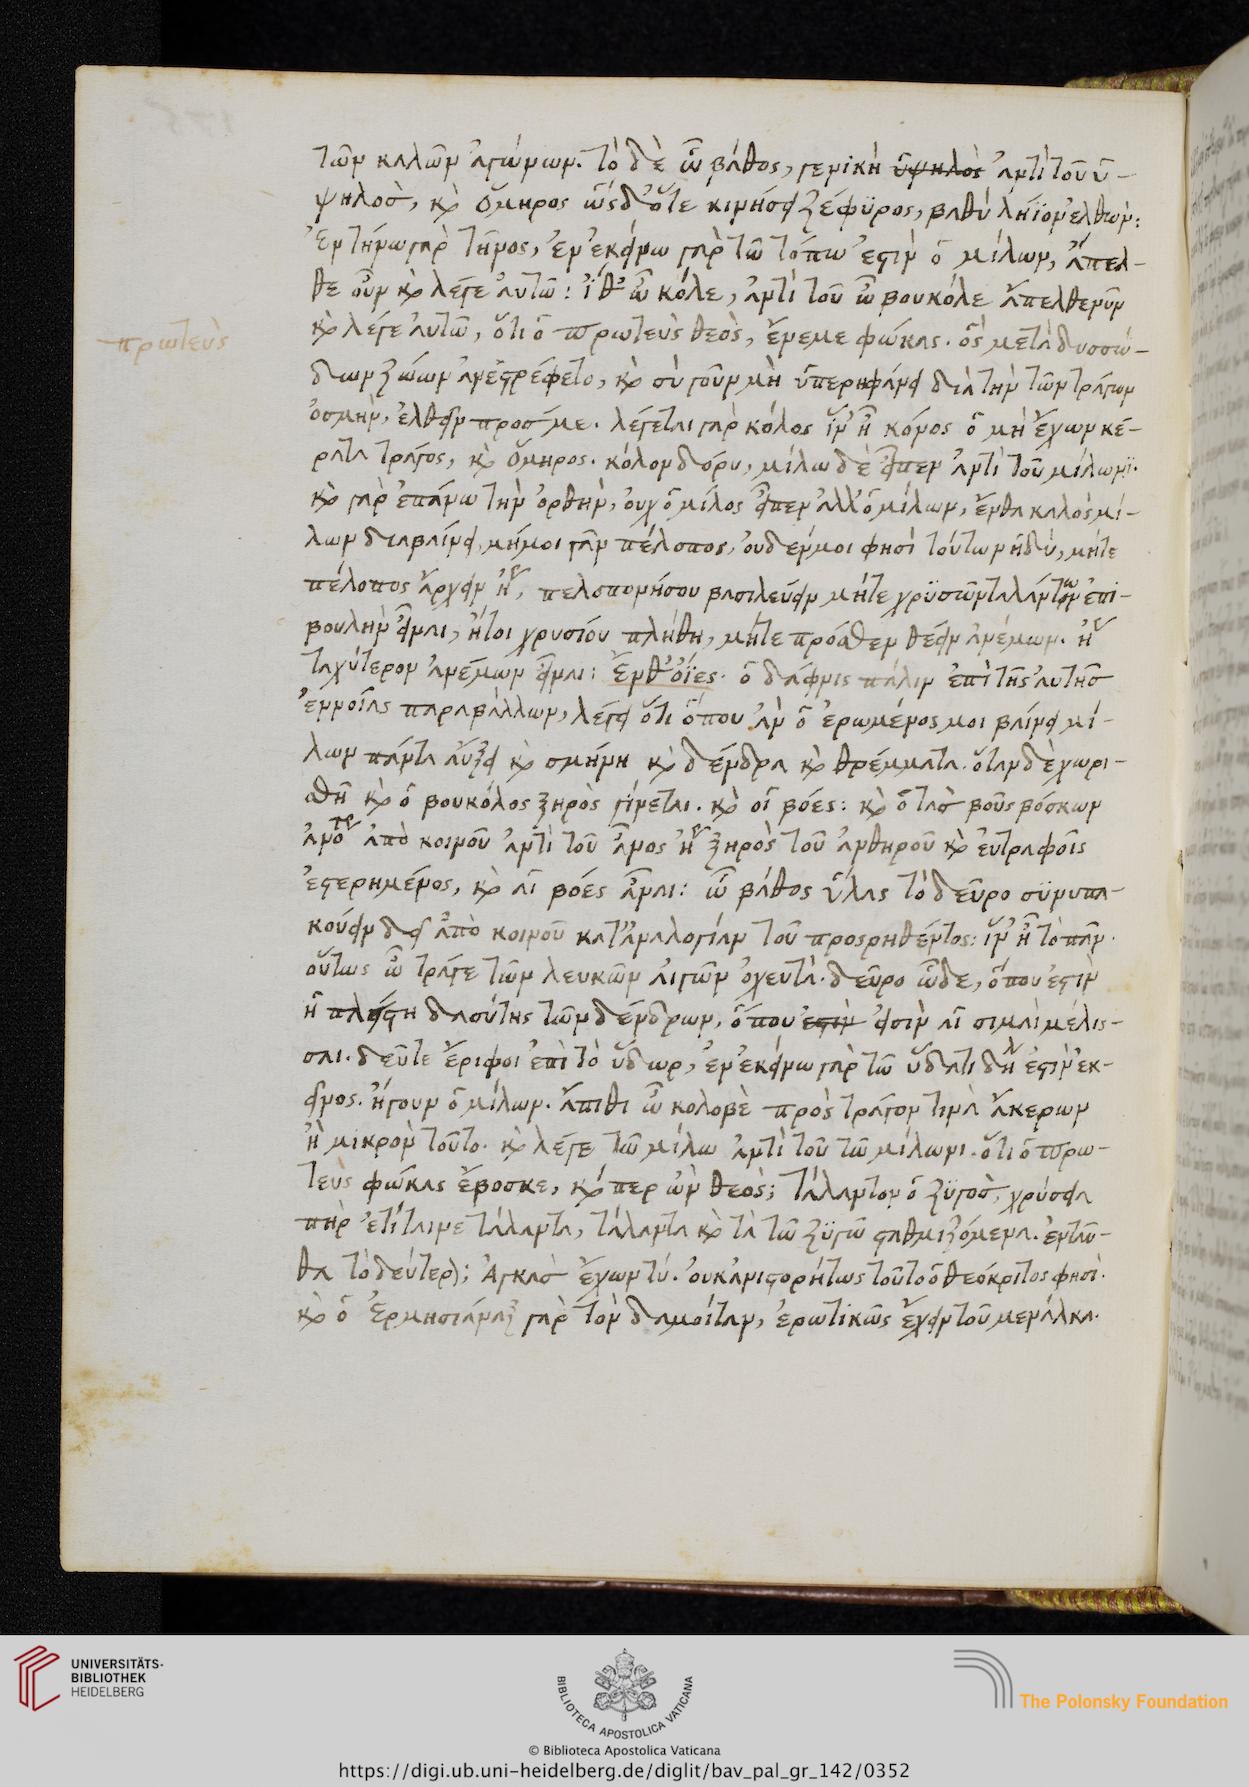 τῶν καλῶν ἀγώνων. τὸ δὲ ὦ βάθος, γενικὴ ὑψηλὸς ἀντὶ τοῦ ὑ-
ψηλοσ, κὶ ὅμηρος ὡς δ' ὅτε κινήσει ζέφϋρος, βαθὺ λήϊον ἐλθών:
Ἐν τήνω γαρ τῆνος, ἐν ἐκείνω γὰρ τῶ τόπω ἐστὶν ὁ μίλων, ἄπελ-
θε οὖν κὶ λέγε ἀυτῶ: ἴθ' ὦ κόλε, ἀντὶ τοῦ ὦ βουκόλε ἄπελθε νῦν
κὶ λέγε ἀυτῶ, ὅτι ὁ πρωτεὺς θεὸς, ἔνεμε φώκας. ὃς μετὰ δυσσώ-
πρωτεὺς
δων ζώων ἀνεστρέφετο, κὶ σὺ γοῦν μὴ ὑπερηφάνει διὰ τὴν τῶν τράγων
ὀσμὴν, ἐλθεῖν προσ με. λέγεται γὰρ κόλος ἵν' ἦ κόνος ὁ μὴ ἔχων κέ-
ρατα τράγος, κὶ ὅμηρος. κόλον δόρυ, μίλω δὲ εἶπεν ἀντὶ τοῦ μίλωνϊ.
κὶ γὰρ ἐπάνω τὴν ὀρθὴν, ουχ ὁ μίλος εἶπεν ἀλλ' ὁ μίλων, ἔνθα καλὸς μί-
λων διαβαίνει, μήμοι γᾶν πέλοπος, ουδεν μοι φησὶ τούτων ἡδύ, μήτε
πέλοπος ἄρχειν ἢ, πελοπονήσου βασιλεύειν μήτε χρϋσῶν ταλάντων ἐπι-
βουλὴν εἶναι, ἤτοι χρυσίου πλήθη, μήτε πρόσθεν θέειν ἀνέμων. ἢ
ταχύτερον ἀνέμων εἶναι: Ἔνθ' ὄϊες. ὁ δάφνις πάλιν ἐπὶ τῆς ἀυτησ
ἐννοίας παραβάλλων, λέγει ὅτι ὅπου ἂν ὁ ἐρωμένος μοι βαίνει μί-
λων πάντα ἀύξει κὶ σμήνη κὶ δένδρα κὶ θρέμματα. ὅταν δὲ χωρι-
σθῆ κὶ ὁ βουκόλος ξηρὸς γίνεται. κὶ οἱ βόες: κὶ ὁ τασ βοῦς βόσκων
ἀπὸ κοινοῦ ἀντὶ τοῦ ξηρὸς τοῦ ἀνθηροῦ κὶ ἐυτραφοῖς
ἐστερημένος, κὶ αἱ βόες ἆναι: ὦ βάθος ὕλας τὸ δεῦρο σϋνυπα-
κούειν δεῖ ἀπὸ κοινοῦ κατ' ἀναλογίαν τοῦ προσρηθέντος: ἵν' ἦ τὸ πᾶν.
οὕτως ὦ τράγε τῶν λευκῶν αἰγῶν ὀχευτὰ. δεῦρο ὧδε, ὅπου ἐστὶν
ἡ πλείστη δασύτης τῶν δένδρων, ὅπου ἐστιν εἰσὶν αἱ σιμαὶ μέλισ-
σαι. δεῦτε ἔριφοι ἐπὶ τὸ ὕδωρ, ἐν ἐκείνω γὰρ τῶ ὕδατι ἐστὶν ἐκ-
εῖνος. ἤγουν ὁ μίλων. ἄπιθι ὦ κολοβὲ πρὸς τράγον τινὰ ἄκερων
ἢ μικρὸν τοῦτο. κὶ λέγε τῶ μίλω ἀντὶ τοῦ τῶ μίλωνι. ὅτι ὁ πρω-
τεὺς φώκας ἔβοσκε, κί περ ὢν θεὸς; τάλαντον ὁ ζϋγοσ, χρύσεια
πὴρ ἐτίταινε τάλαντα, τάλαντα κὶ τὰ τῶ ζϋγῶ σταθμιζόμενα. ἐνταῦ-
θα τὸ δεύτερον; Ἀγκασ ἔχων τύ. ουκ ἀνιστορήτως τοῦτο ὁ θεόκριτος φησι.
κὶ ὁ Ἑρμησιάναξ γὰρ τὸν δαμοίταν, ἐρωτικῶς ἔχειν τοῦ μενάλκα.
UNIVERSITÄTS-
BIBLIOTHEK
HEIDELBERG
BIBLIOTECA APOSTOLICA VATICANA
The Polonsky Foundation
© Biblioteca Apostolica Vaticana
https://digi.ub.uni-heidelberg.de/diglit/bav_pal_gr_142/0352